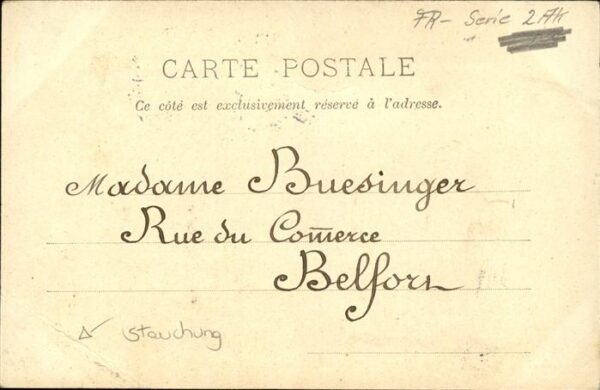 FR- Serie 2AK
CARTE POSTALE
Ce côté est exclusivement réservé à l'adresse.
Madame Buesinger
Rue du Com̅erce
Belfort
Stauchung